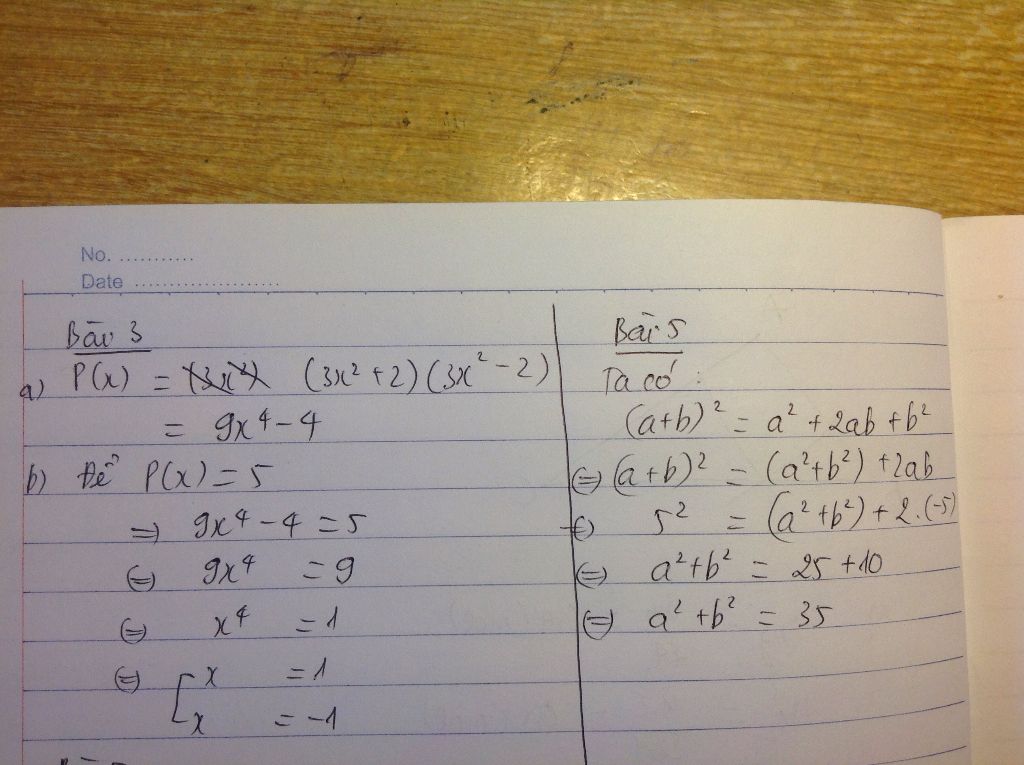 No. ...........
Date ......................
Bài 3
a) P(x) = (3x²+2)(3x²-2)
= 9x⁴-4
b) Để P(x) = 5
=> 9x⁴-4 = 5
(=) 9x⁴ = 9
(=) x⁴ = 1
(=) [x = 1
x = -1
Bài 5
Ta có :
(a+b)² = a² + 2ab + b²
(=) (a+b)² = (a²+b²) + 2ab
(=) 5² = (a²+b²) + 2.(-5)
(=) a²+b² = 25 + 10
(=) a² + b² = 35